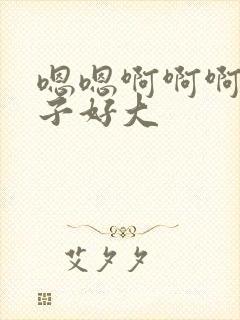 嗯嗯啊啊啊
子好大
艾夕夕